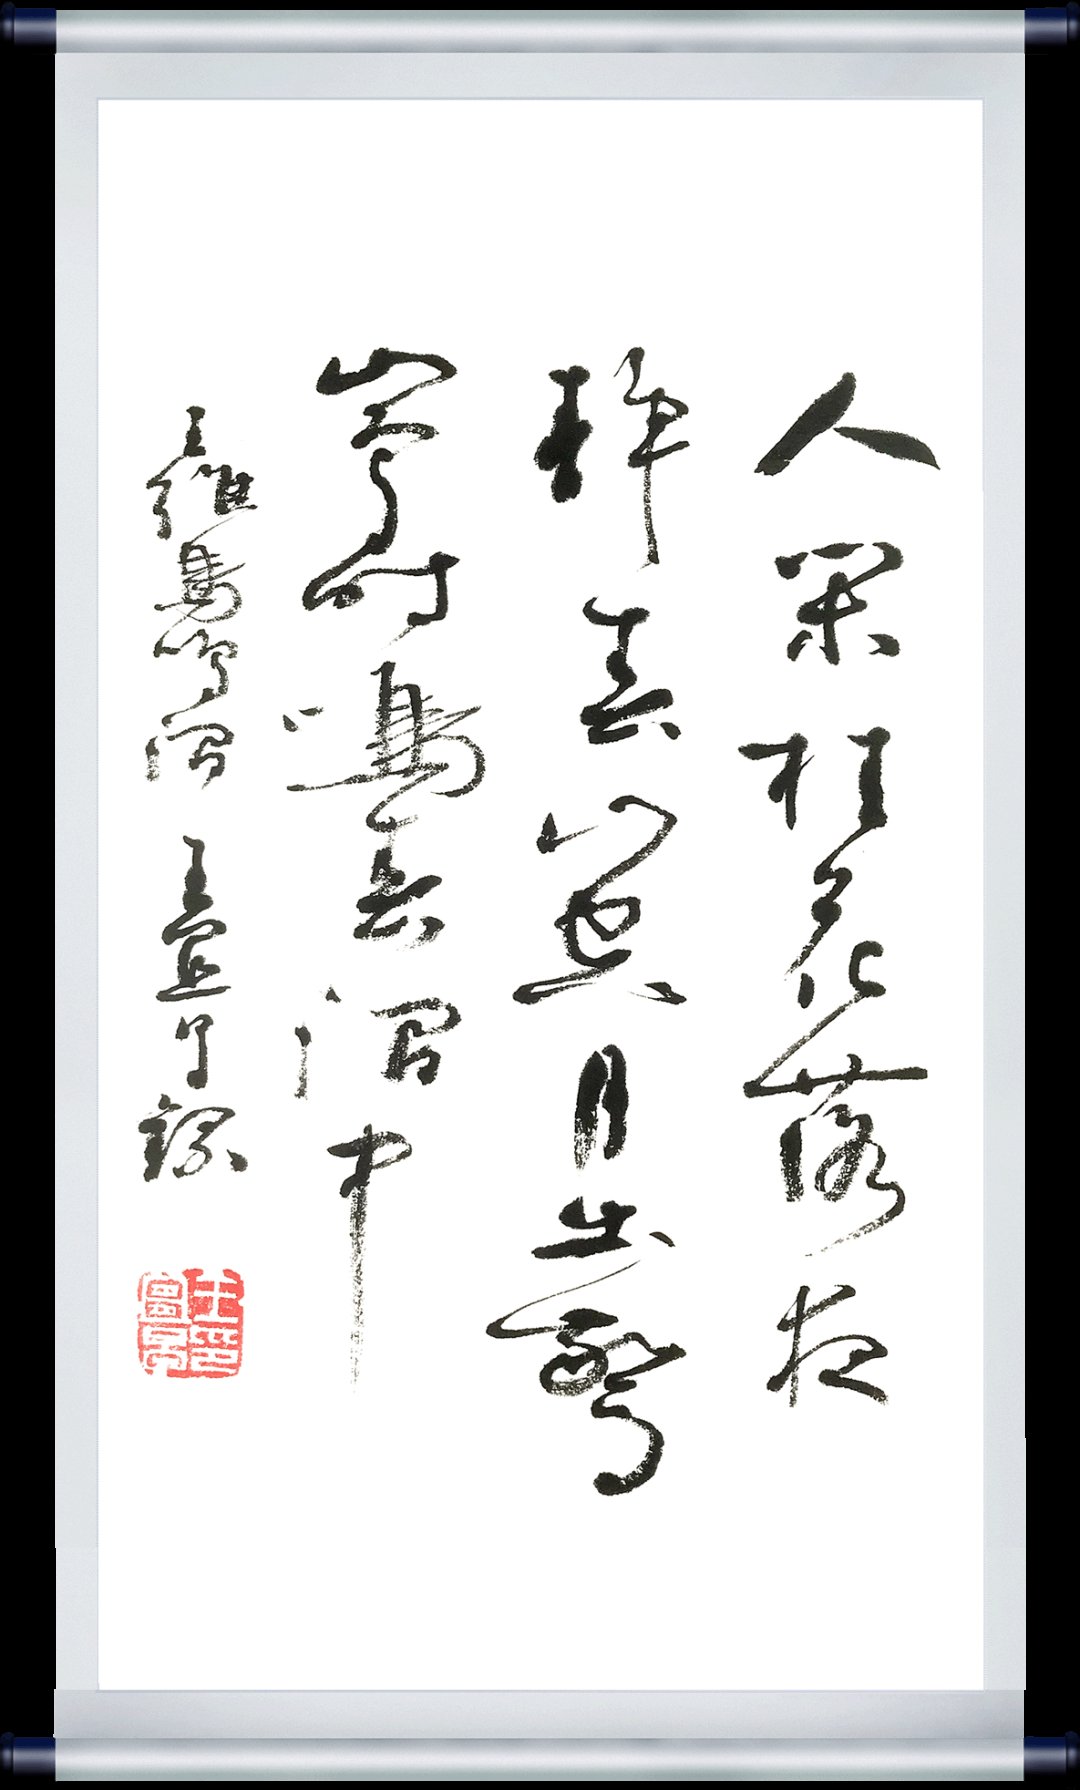 人閑桂花落夜
静春山空月出驚
山鳥時鳴春澗中
王維鳥鳴澗 王 録